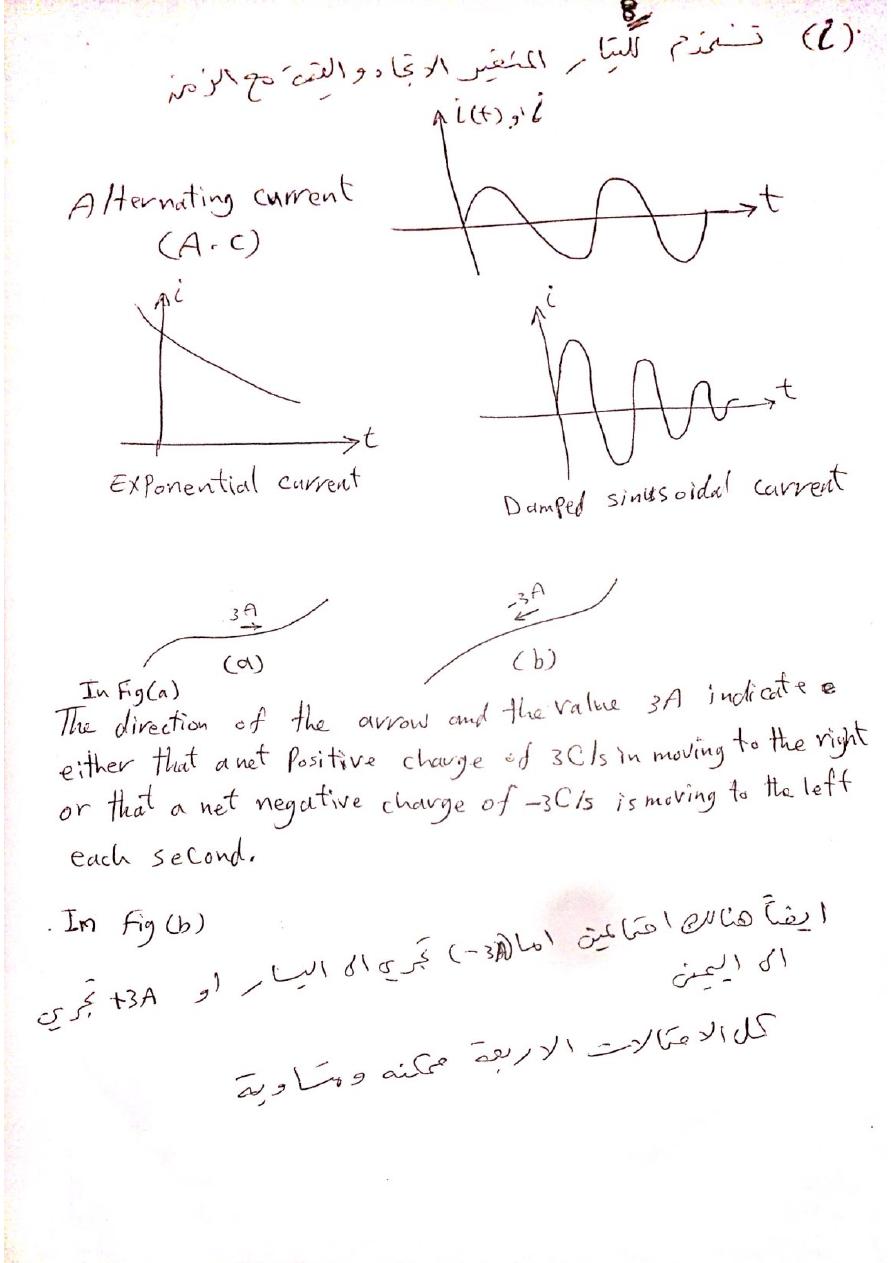 8
(i) تستخدم للتيار المتغير الاتجاه والقيمة مع الزمن
i او i(t)
t
Alternating current
(A.C)
i
t
Exponential current
i
t
Damped sinusoidal current
3A
(a)
-3A
(b)
In Fig(a)
The direction of the arrow and the value 3A indicate
either that a net Positive charge of 3C/s in moving to the right
or that a net negative charge of -3C/s is moving to the left
each second.
. In fig (b)
ايضاً هنالك احتمالين اما (-3A) تجري الى اليسار او +3A تجري
الى اليمين
كل الاحتمالات الاربعة ممكنه ومتساوية